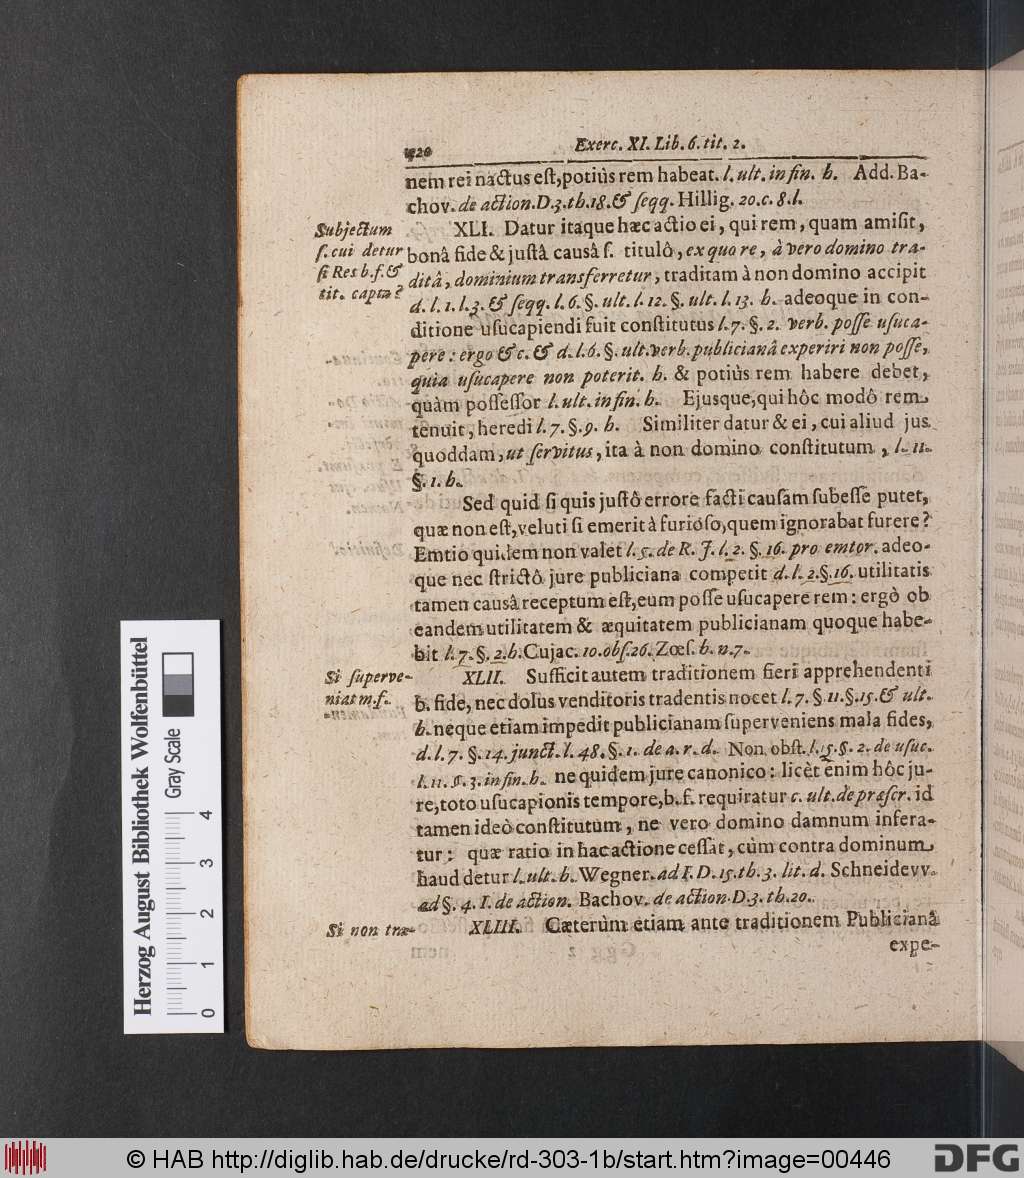 420 Exerc. XI. Lib. 6. tit. 2.
nem rei nactus est, potiùs rem habeat. l. ult. in fin. h. Add. Ba-
chov. de action. D. 3. th. 18. & seqq. Hillig. 20. c. 8. l.
Subjectum
s. cui detur
si Res b. f. &
tit. capta?
XLI. Datur itaque hæc actio ei, qui rem, quam amisit,
bonâ fide & justâ causâ s. titulô, ex quo re, à vero domino tra-
ditâ, dominium transferretur, traditam à non domino accipit
d. l. 1. l. 3. & seqq. l. 6. §. ult. l. 12. §. ult. l. 13. h. adeoque in con-
ditione usucapiendi fuit constitutus l. 7. §. 2. verb. posse usuca-
pere: ergo & c. & d. l. 6. §. ult. verb. publicianâ experiri non posse,
quia usucapere non poterit. h. & potiùs rem habere debet,
quàm possessor l. ult. in fin. h. Ejusque, qui hôc modô rem
tenuit, heredi l. 7. §. 9. h. Similiter datur & ei, cui aliud jus
quoddam, ut servitus, ita à non domino constitutum, l. 11.
§. 1. h.
Sed quid si quis justô errore facti causam subesse putet,
quæ non est, veluti si emerit à furioso, quem ignorabat furere?
Emtio quidem non valet l. 5. de R. J. l. 2. §. 16. pro emtor. adeo-
que nec strictô jure publiciana competit d. l. 2. §. 16. utilitatis
tamen causâ receptum est, eum posse usucapere rem: ergò ob
eandem utilitatem & æquitatem publicianam quoque habe-
bit l. 7. §. 2. h. Cujac. 10. obs. 26. Zœs. h. n. 7.
Si superve-
niat m. f.
XLII. Sufficit autem traditionem fieri apprehendenti
b. fide, nec dolus venditoris tradentis nocet l. 7. §. 11. §. 15. & ult.
h. neque etiam impedit publicianam superveniens mala fides,
d. l. 7. §. 14. junct. l. 48. §. 1. de a. r. d. Non obst. l. 15. §. 2. de usuc.
l. 11. §. 3. in fin. h. ne quidem jure canonico: licèt enim hôc ju-
re, toto usucapionis tempore, b. f. requiratur c. ult. de præscr. id
tamen ideò constitutum, ne vero domino damnum infera-
tur: quæ ratio in hac actione cessat, cùm contra dominum
haud detur l. ult. h. Wegner. ad I. D. 15. th. 3. lit. d. Schneidevv.
ad §. 4. I. de action. Bachov. de action. D. 3. th. 20.
Si non tra-
XLIII. Cæterùm etiam ante traditionem Publicianâ
expe-
Herzog August Bibliothek Wolfenbüttel
Gray Scale
0 1 2 3 4
© HAB http://diglib.hab.de/drucke/rd-303-1b/start.htm?image=00446
DFG